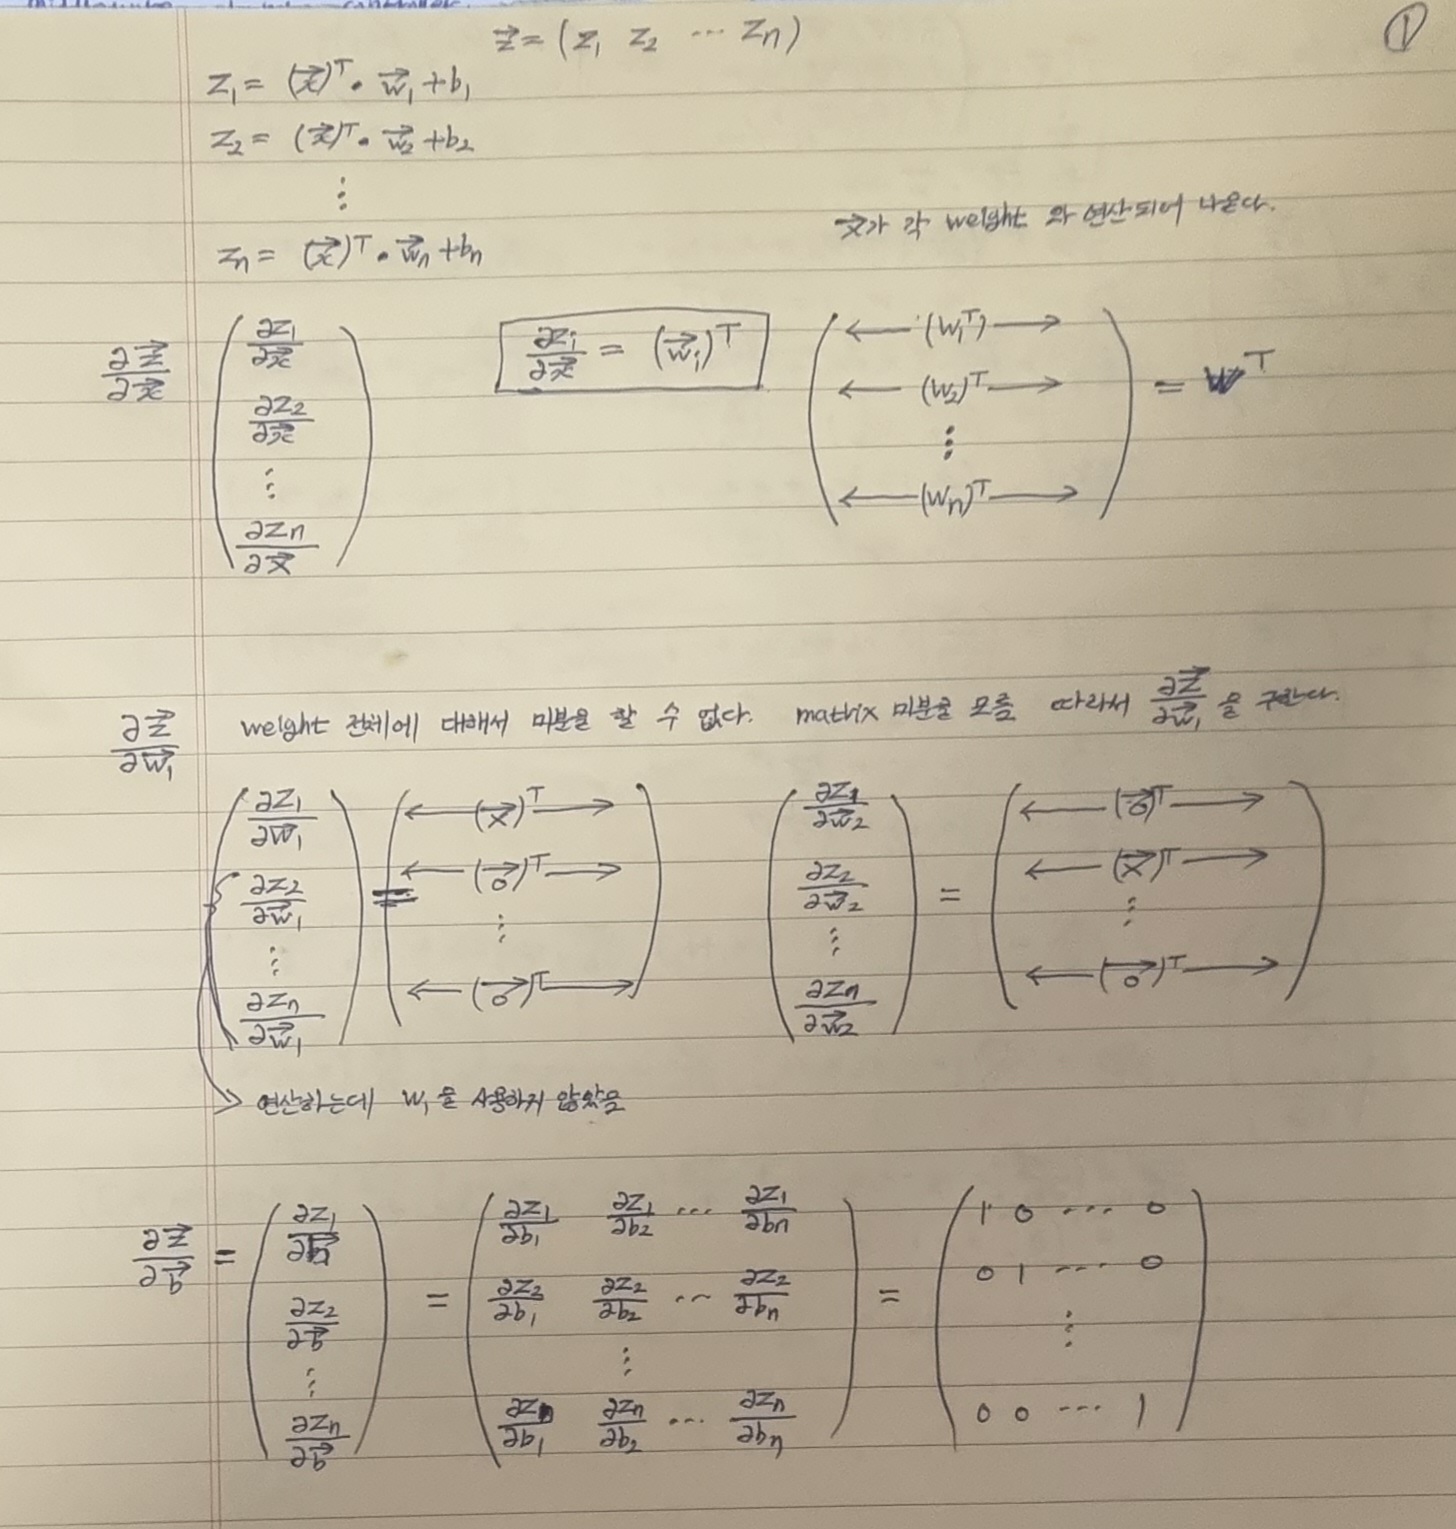 ①
z⃗ = (z₁ z₂ ⋯ zₙ)
z₁ = (x⃗)ᵀ · w⃗₁ + b₁
z₂ = (x⃗)ᵀ · w⃗₂ + b₂
⋮
x⃗가 각 weight 와 연산되어 나온다.
zₙ = (x⃗)ᵀ · w⃗ₙ + bₙ
∂z⃗/∂x⃗ (∂z₁/∂x⃗ ∂z₂/∂x⃗ ⋮ ∂zₙ/∂x⃗)
∂zᵢ/∂x⃗ = (w⃗ᵢ)ᵀ
(←(w₁ᵀ)→ ←(w₂)ᵀ→ ⋮ ←(wₙ)ᵀ→) = Wᵀ
∂z⃗/∂w⃗₁ weight 전체에 대해서 미분을 할 수 없다. matrix 미분을 모름 따라서 ∂z⃗/∂w⃗₁ 을 구한다.
(∂z₁/∂w⃗₁ ∂z₂/∂w⃗₁ ⋮ ∂zₙ/∂w⃗₁) = (←(x⃗)ᵀ→ ←(0⃗)ᵀ→ ⋮ ←(0⃗)ᵀ→)
(∂z₁/∂w⃗₂ ∂z₂/∂w⃗₂ ⋮ ∂zₙ/∂w⃗₂) = (←(0⃗)ᵀ→ ←(x⃗)ᵀ→ ⋮ ←(0⃗)ᵀ→)
→ 연산하는데 w₁을 사용하지 않았음
∂z⃗/∂b⃗ = (∂z₁/∂b⃗ ∂z₂/∂b⃗ ⋮ ∂zₙ/∂b⃗) = (∂z₁/∂b₁ ∂z₁/∂b₂ ⋯ ∂z₁/∂bₙ
∂z₂/∂b₁ ∂z₂/∂b₂ ⋯ ∂z₂/∂bₙ
⋮
∂zₙ/∂b₁ ∂zₙ/∂b₂ ⋯ ∂zₙ/∂bₙ)
= (1 0 ⋯ 0
0 1 ⋯ 0
⋮
0 0 ⋯ 1)